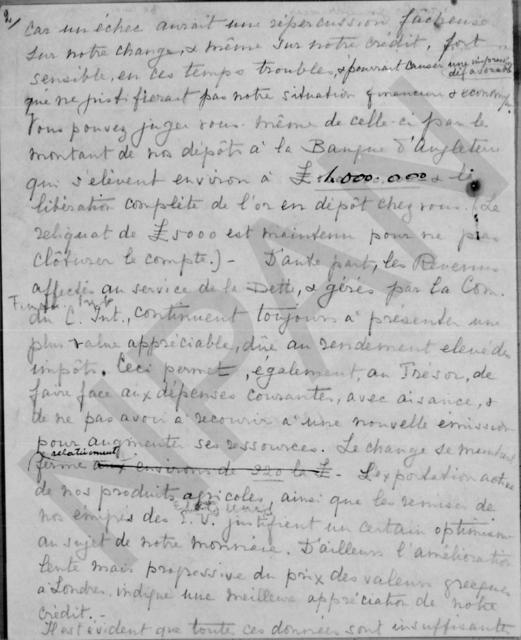 2/
car un échec aurait une répercussion fâcheuse
sur notre change, & même sur notre crédit, fort
sensible, en ces temps troubles, & pourrait causer une impression
défavorable
que ne justifierait pas notre situation financière & économ.
Vous pouvez juger vous-même de celle-ci par le
montant de nos dépôts à la Banque d'Angleterre
qui s'élèvent environ à £ 000.000 & la
libération complète de l'or en dépôt chez vous. (Le
reliquat de £5000 est maintenu pour ne pas
clôturer le compte.) - D'autre part, les Revenus
affectés au service de la Dette, & gérés par la Com.
du C. Int., continuent toujours à présenter une
plus value appréciable, dûe au rendement elevé des
impôts. Ceci permet, également, au Trésor, de
faire face aux dépenses courantes, avec aisance, &
de ne pas avoir à recourir à une nouvelle emission
pour augmenter ses ressources. Le change se maintient
relativement
ferme aux environs de 220 la £ - L'exportation active
de nos produits agricoles, ainsi que les remises de
nos emigrés des E. U. justifient un certain optimisme
au sujet de notre monnaie. D'ailleurs l'amélioration
lente mais progressive du prix des valeurs grecques
à Londres indique une meilleure appréciation de notre
crédit. -
Il est évident que toute ces données sont insuffisantes
NPAN